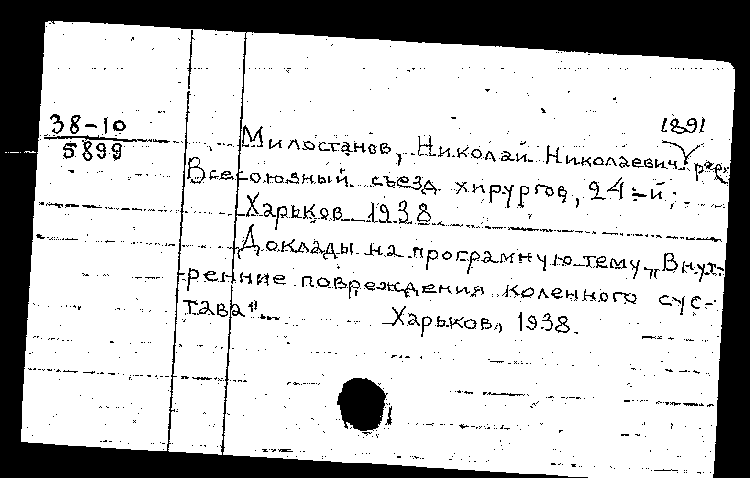 38-10
5899
1891
Милостанов, Николай Николаевич, ред.
Всесоюзный съезд хирургов, 24-й;
Харьков 1938
Доклады на програмную тему „Внут-
ренние повреждения коленного сус-
тава"... Харьков, 1938.